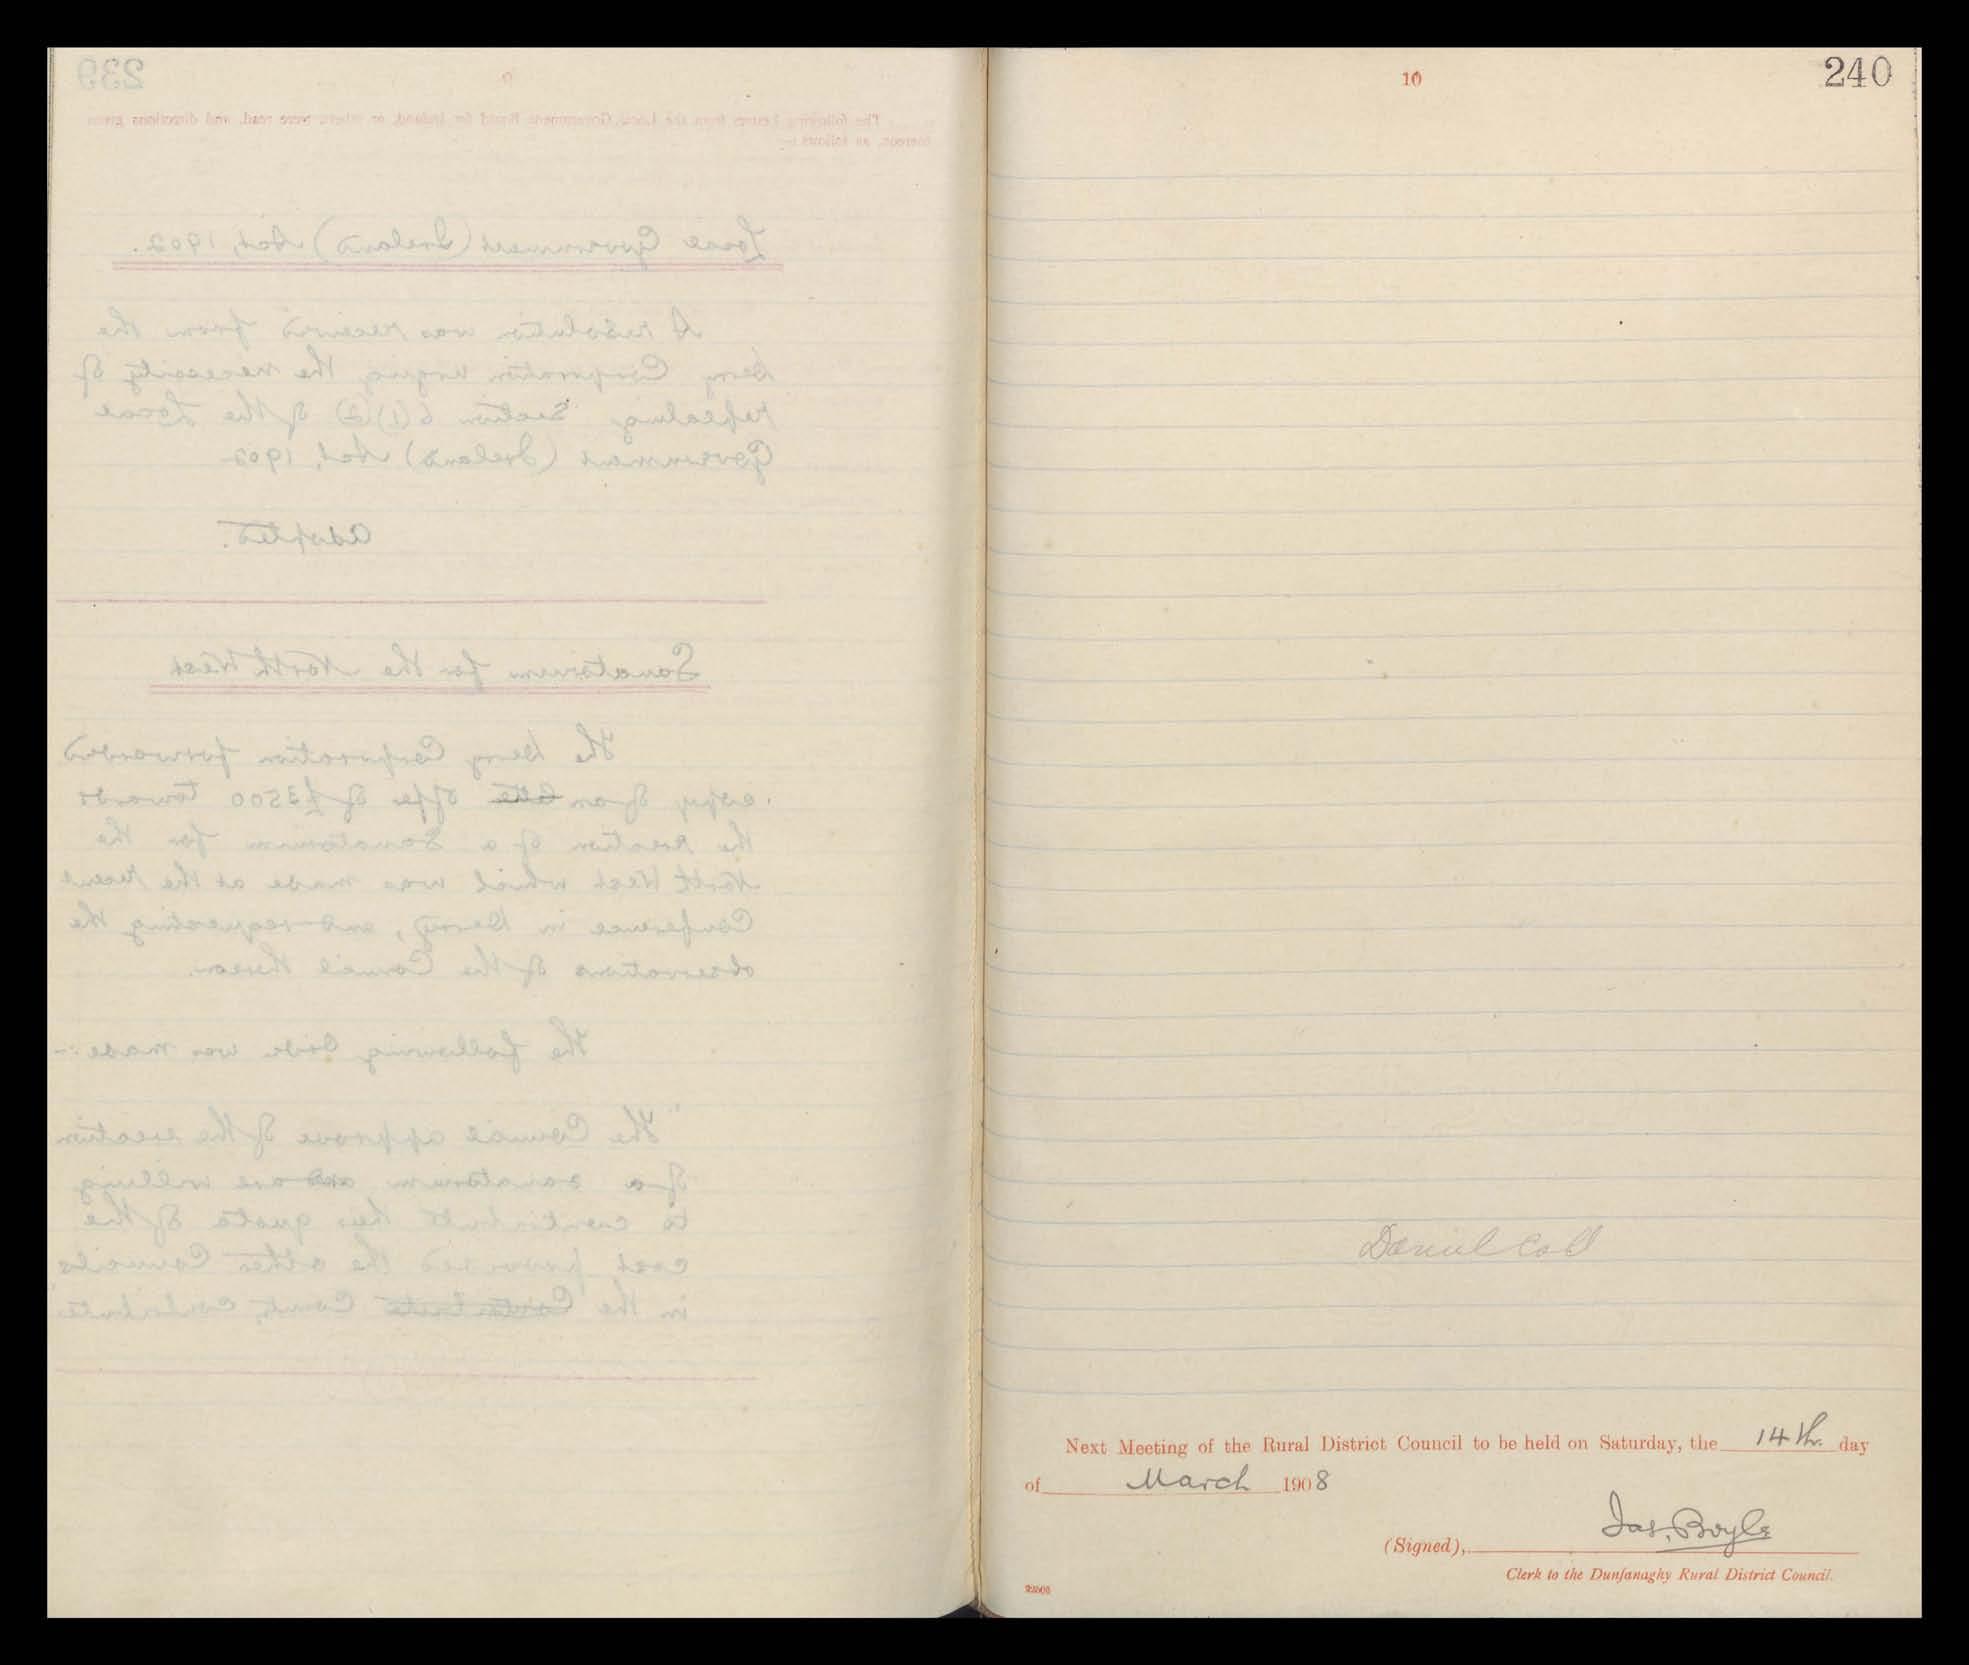 239
9
The following Letters from the Local Government Board for Ireland, or others were read, and directions given
thereon, as follows :—
Local Government (Ireland) Act, 1902.
A resolution was received from the
Derry Corporation urging the necessity of
repealing Section 6(1)(2) of the Local
Government (Ireland) Act, 1902
Adopted.
Sanatorium for the North West
The Derry Corporation forwarded
copy of an offer of £3500 towards
the erection of a Sanatorium for the
North West which was made at the recent
Conference in Derry, and requesting the
observations of the Council thereon.
The following Order was made:-
"The Council approve of the erection
of a sanatorium and are willing
to contribute their quota of the
cost provided the other Councils
in the County contribute
10
240
Daniel Coll
Next Meeting of the Rural District Council to be held on Saturday, the 14th. day
of March 1908
(Signed), Jas. Boyle
Clerk to the Dunfanaghy Rural District Council.